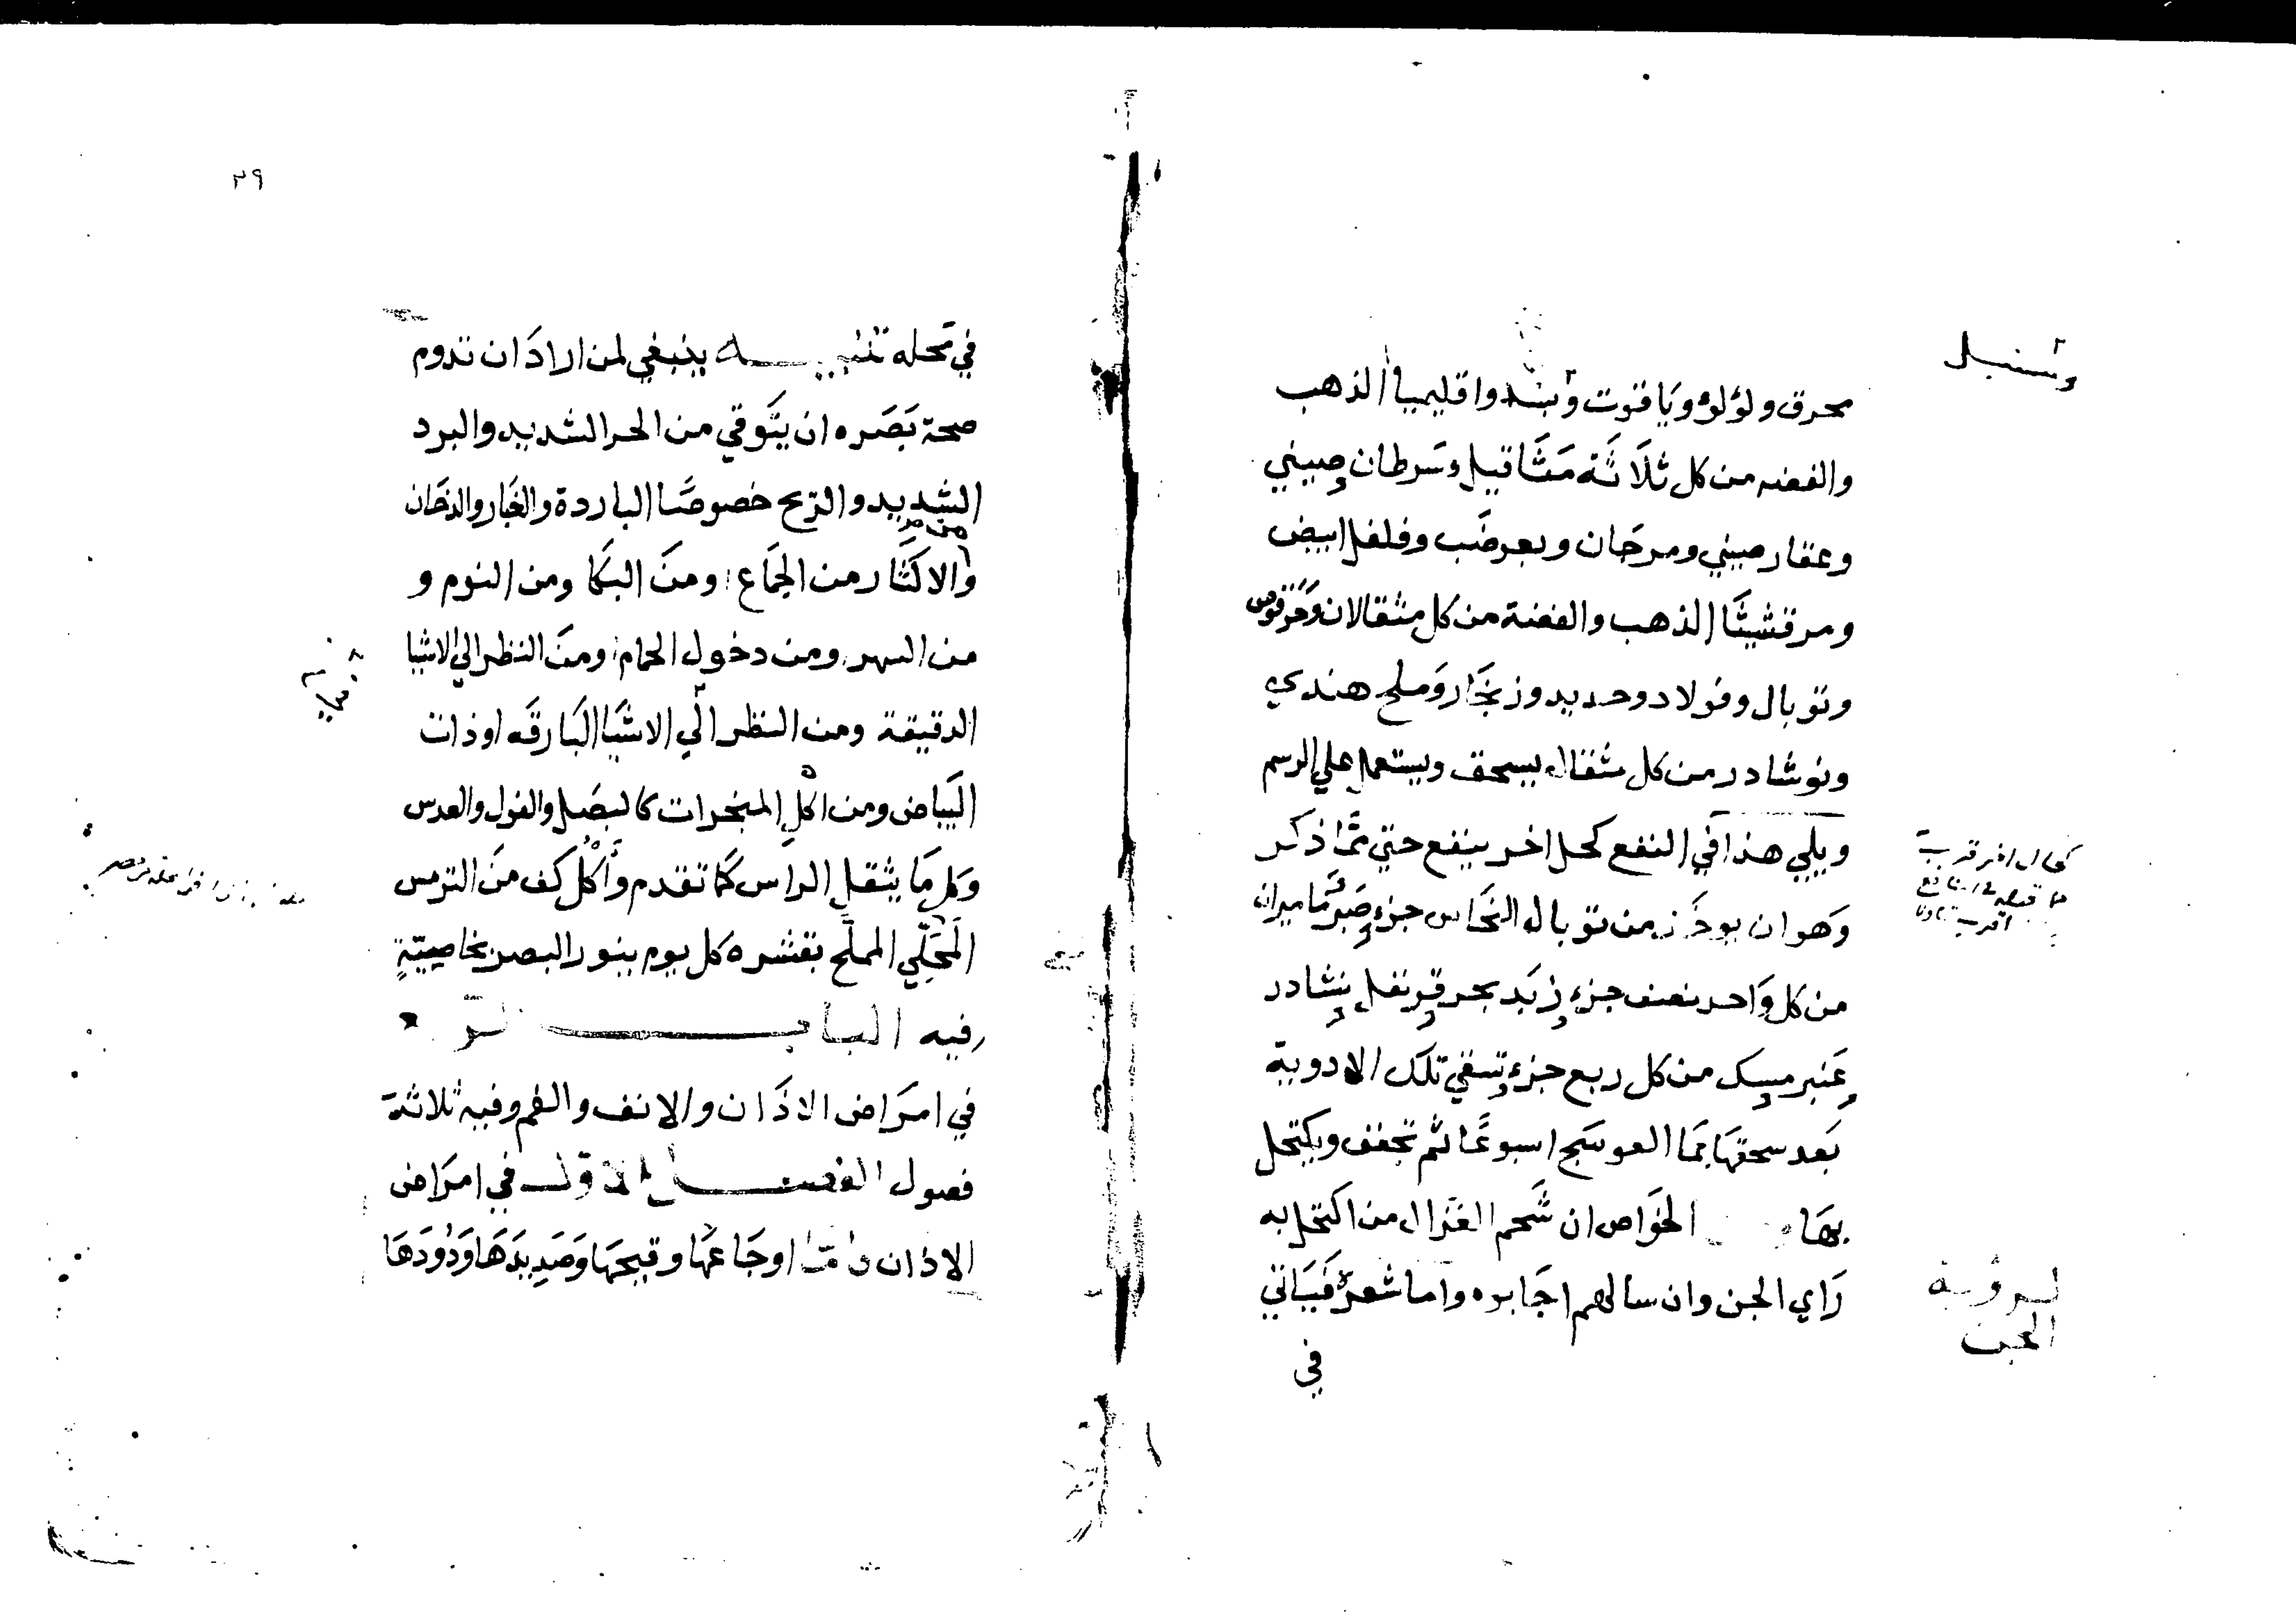 محرق ولؤلؤ وياقوت وبسد واقليميا الذهب
والفضه من كل ثلاثة مثاقيل وسرطان صيني
وعقار صيني ومرجان وبعر ضب وفلفل ابيض
ومرقشيثا الذهب والفضة من كل مثقالان
وتوبال وفولاد وحديد وزنجار وملح هندي
ونوشادر من كل مثقال يسحق ويستعمل علي الرسم
ويلي هذا في النفع كحل اخر ينفع حتي مما ذكر
وهو ان يوخذ من توبال النحاس جزء صبر ماميران
من كل واحد نصف جزء زبد بحر قرنفل نشادر
عنبر مسك من كل ربع جزء تسقي تلك الادوية
بعد سحقها بما العوسج اسبوعا ثم تجفف ويكتحل
بها الخواص ان شحم الغزال من اكتحل به
راي الجن وان سالهم اجابوه واما شعره فياتي
في
وسنبل
لرؤية
الجن
٣٩
في محله تنبيه ينبغي لمن اراد ان تدوم
صحة بصره ان يتوقي من الحر الشديد والبرد
الشديد والريح خصوصا الباردة والغبار والدخان
والاكثار من الجماع ومن البكا ومن النوم و
من السهر ومن دخول الحمام ومن النظر الي الاشيا
الدقيقة ومن النظر الي الاشيا البارقه او ذات
البياض ومن اكل المبخرات كالبصل والفول والعدس
وكل ما يثقل الراس كما تقدم واكل كف من الترمس
المحلي المملح بقشره كل يوم ينور البصر بخاصيتة
فيه الباب
في امراض الاذان والانف والفم وفيه ثلاثة
فصول الفصل الاول في امراض
الاذان واما اوجاعها وقيحها وصديدها ودودها